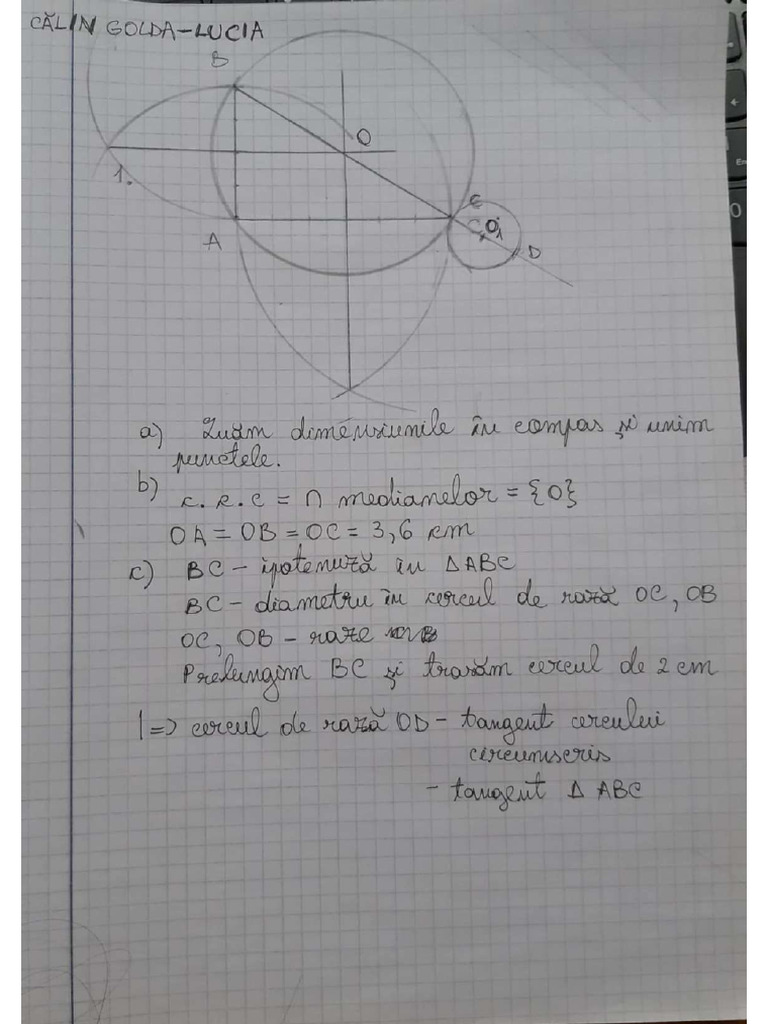 CĂLIN GOLDA-LUCIA
B
O
1.
A
C
C O₁
D
a) Luăm dimensiunile în compas și unim
punctele.
b) c.c.c = ∩ medianelor = {O}
OA = OB = OC = 3,6 cm
c) BC - ipotenuză în ΔABC
BC - diametru în cercul de rază OC, OB
OC, OB - raze
Prelungim BC și trasăm cercul de 2 cm
|=> cercul de rază OD - tangent cercului
circumscris
- tangent Δ ABC